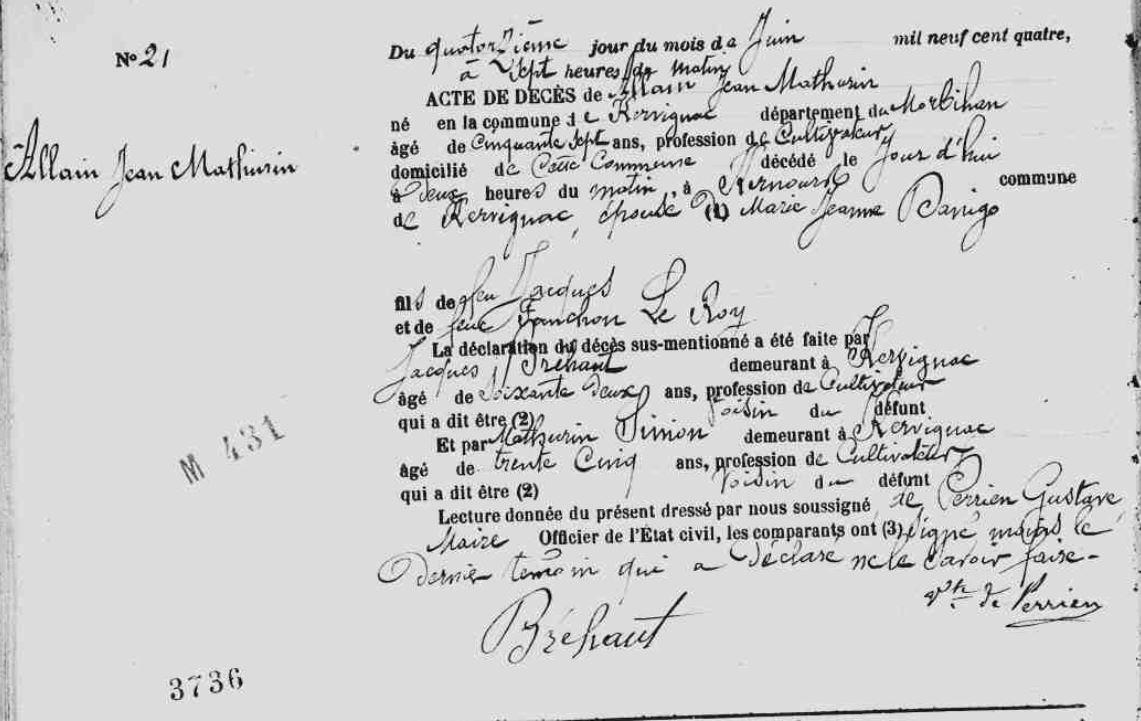 N° 21
Allain Jean Mathurin
Du quatorzième jour du mois de Juin mil neuf cent quatre,
à Sept heures du matin
ACTE DE DÉCÈS de Allain Jean Mathurin
né en la commune de Kervignac département du Morbihan
âgé de Cinquante sept ans, profession de Cultivateur
domicilié de Cette Commune décédé le Jour d'hui
à deux heures du matin, à commune
de Kervignac, épouse D (1) Marie Jeanne Danigo
fils de feu Jacques
et de feue Fanchon Le Roy
La déclaration du décès sus-mentionné a été faite par
Jacques Bréhaut demeurant à Kervignac
âgé de Soixante deux ans, profession de Cultivateur
qui a dit être (2) Voisin du défunt
Et par Mathurin Simon demeurant à Kervignac
âgé de trente Cinq ans, profession de Cultivateur
qui a dit être (2) Voisin du défunt
Lecture donnée du présent dressé par nous soussigné, de Perrien Gustave
Maire Officier de l'État civil, les comparants ont (3) Signé moins le
dernier temoin qui a déclaré ne le savoir faire -
Vte de Perrien
Bréhaut
M 431
3736